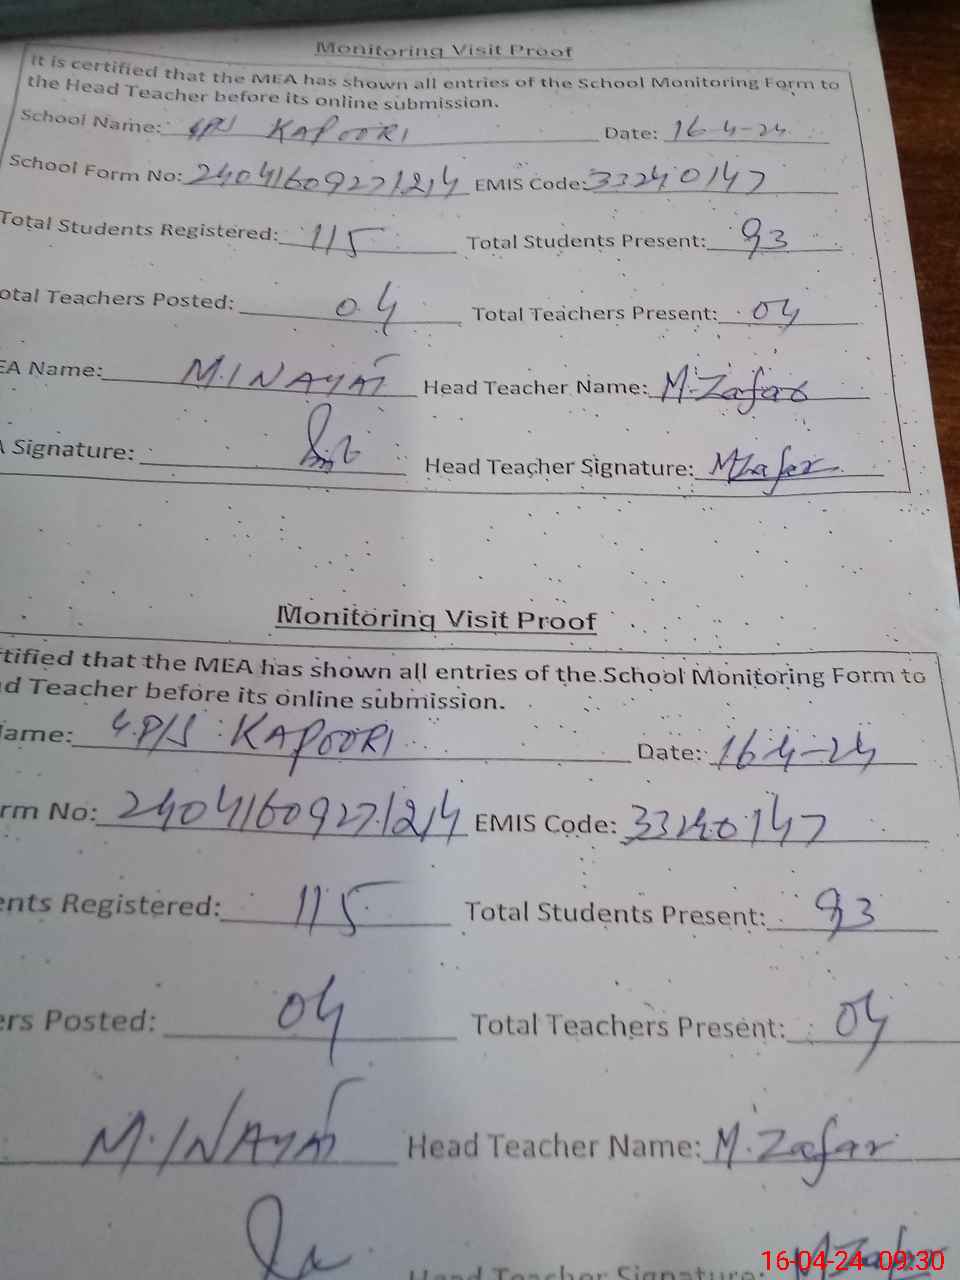 Monitoring Visit Proof
It is certified that the MEA has shown all entries of the School Monitoring Form to
the Head Teacher before its online submission.
School Name: GPS KAPOORI Date: 16-4-24
School Form No: 24041609271214 EMIS Code: 33240147
Total Students Registered: 115 Total Students Present: 93
otal Teachers Posted: 04 Total Teachers Present: 04
EA Name: M.INAYAT Head Teacher Name: M.Zafar
A Signature: Head Teacher Signature: MZafar
Monitoring Visit Proof
rtified that the MEA has shown all entries of the School Monitoring Form to
d Teacher before its online submission.
ame: G.P/S KAPOORI Date: 16-4-24
rm No: 24041609271214 EMIS Code: 33240147
ents Registered: 115 Total Students Present: 93
ers Posted: 04 Total Teachers Present: 04
M.INAYAT Head Teacher Name: M.Zafar
Head Teacher Signature: MZafar
16-04-24 09:30